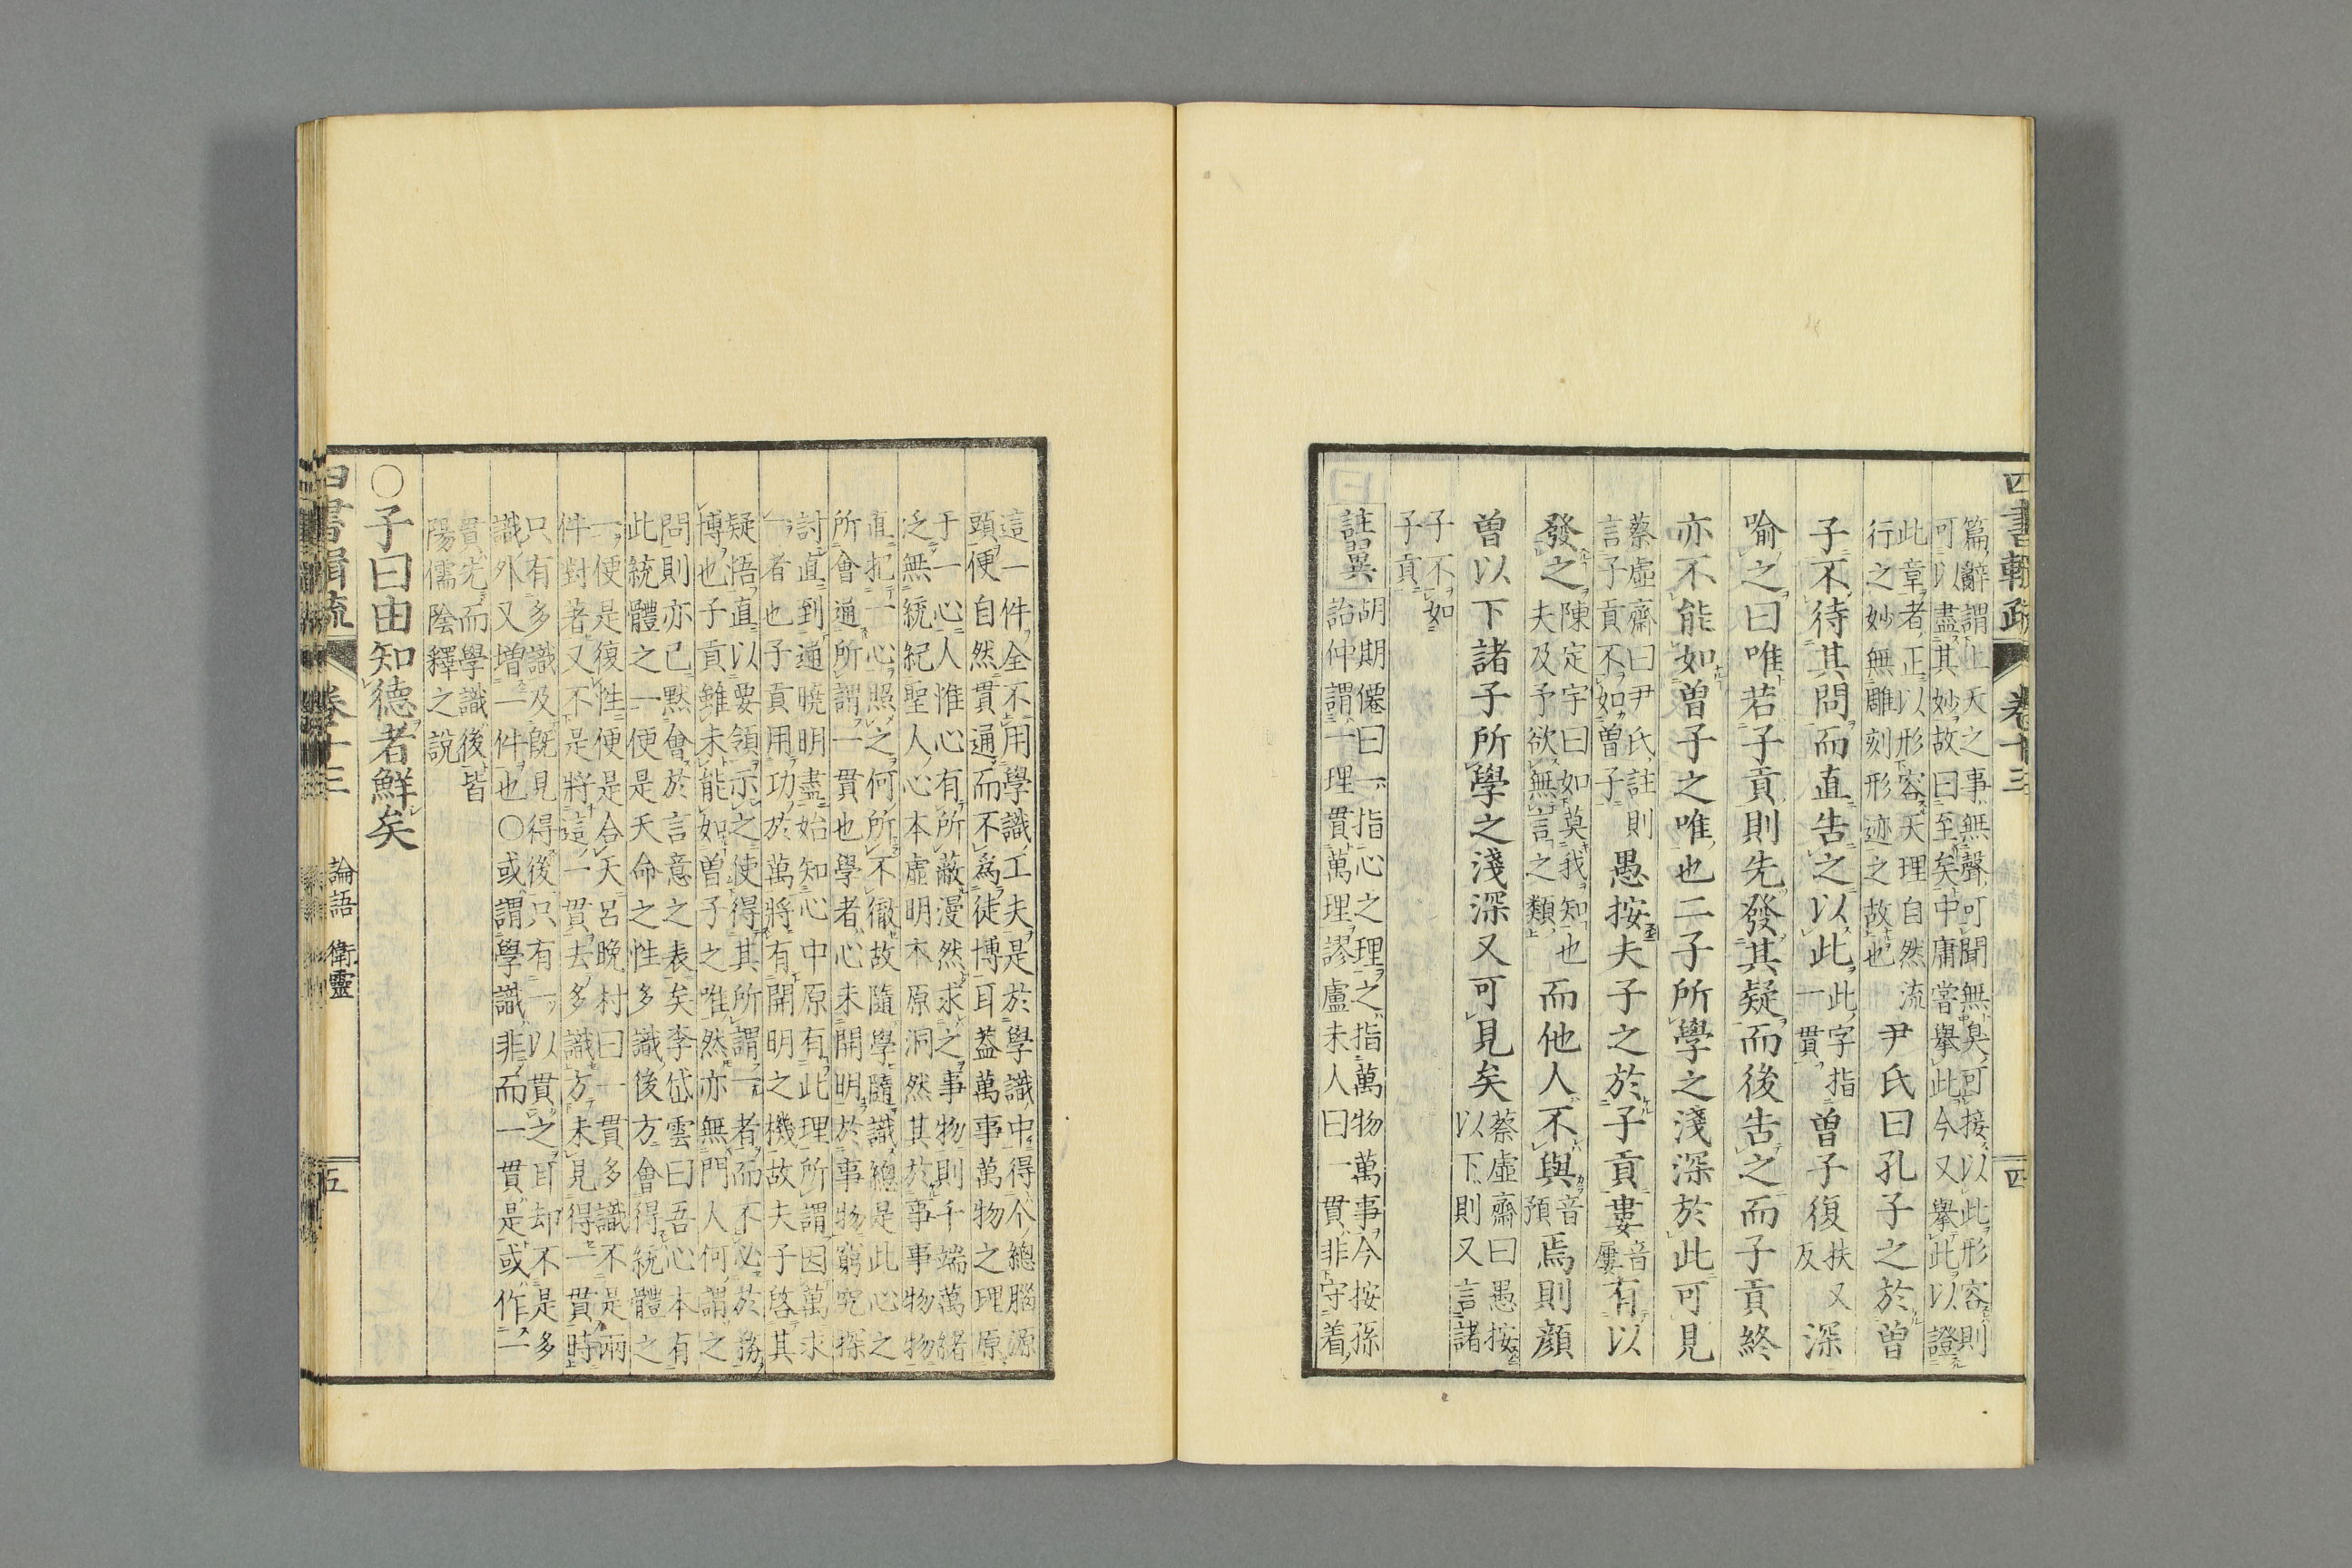 四書輯疏 卷十三 四
篇辭謂上天之事無聲可聞無臭可接以此形容則
可以盡其妙故曰至矣中庸嘗擧此今又擧此以證
此章者正以形容天理自然流
行之妙無雕刻形迹之故也
尹氏曰孔子之於曾
子不待其問而直告之以此
此字指
一貫
曾子復
扶又
反
深
喻之曰唯若子貢則先發其疑而後告之而子貢終
亦不能如曾子之唯也二子所學之淺深於此可見
蔡虛齋曰尹氏註則
言子貢不如曾子
愚按夫子之於子貢婁
音
屢
有以
發之
陳定宇曰如莫我知也
夫及予欲無言之類
而他人不與
音
預
焉則顏
曾以下諸子所學之淺深又可見矣
蔡虛齋曰愚按
以下則又言諸
子不如
子貢
註翼
胡期僊曰一指心之理之指萬物萬事今按孫
詒仲謂一理貫萬理謬盧未人曰一貫非守着
這一件全不用學識工夫是於學識中得个總腦源
頭便自然貫通而不爲徒博耳蓋萬事萬物之理原
于一心人惟心有所蔽漫然求之事物則千端萬緒
乏無統紀聖人心本虛明本原洞然其於事事物物
直把一心照之何所不徹故隨學隨識總是此心之
所會通所謂一貫也學者心未開明於事物窮究探
討直到通曉明盡始知心中原有此理所謂因萬求
一者也子貢用功於萬將有開明之機故夫子啓其
疑悟直以要領示之使得其所謂一者而不必於務
博也子貢雖未能如曾子之唯然亦無門人何謂之
問則亦已默會於言意之表矣李岱雲曰吾心本有
此統體之一便是天命之性多識後方會得統體之
一便是復性便是合天呂晩村曰一貫多識不是兩
件對著又不是將這一貫去多識方未見得一貫時
只有多識及旣見得後只有一以貫之耳却不是多
識外又增一件也○或謂學識非而一貫是或作一
貫先而學識後皆
陽儒陰釋之說
○子曰由知德者鮮矣
四書輯疏 卷十三 論語 衛靈 五